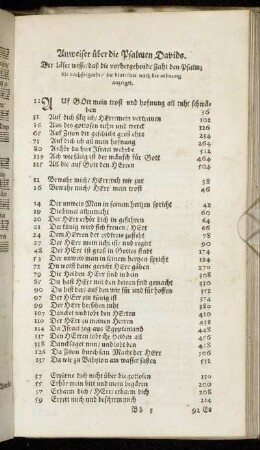 Anweiser über die Psalmen Davids.
Der Läser wisse/ daß die vorhergehende Zahl den Psalm;
die nachfolgende/ die blatseite nach der ordnung
anzeiget.
11 AUf Gott mein trost und hofnung all ruht
ben 36
31 Auf dich setz ich/ HErr mein vertrauen 102
36 Aus des gottlosen tuhn und werck 126
65 Auf Zion dir geschicht groß ehr 264
71 Auf dich ich all mein hofnung 294
80 Archie du hirt Israel wehrte 352
119 Ach wie sälig ist der mänsch für Gott 464
125 All die auf Gott den HErren 504
12 Bewahr mich/ HErr steh mir zur 38
16 Bewahr mich/ HErr mein trost 46
14 Der unweis Mann in seinem hertzen spricht 42
19 Die himel allzumahl 60
20 Der HErr erhör dich in gefahren 64
21 Der künig wird sich freuen/ HErr 66
24 Dem HErren der erdtreis zusteht 78
27 Der HErr mein liecht ist/ und regirt 90
48 Der HErr ist groß in Gottes statt 174
53 Der unweis man in seinem hertzen spricht 240
72 Du wolst dein gericht HErr gäben 270
79 Die Heiden HErr sind in dein 308
85 Du hast HErr mit den deinen frid gemacht 330
90 Du bist der/ auf den wir für und für hoffen 350
97 Der HErr ein künig ist 374
99 Der HErr herschen tuht 380
107 Dancket und lobt den HErren 410
110 Der HErr zu meinem Herren 432
114 Da Israel zog aus Egyptenland 446
117 Den HErren lobt ihr Heiden all 458
118 Dancksaget nun/ und lobt den 458
126 Da Zion durch sein Macht der HErr 506
137 Da wir zu Babylon am wasser saßen 552
37 Erzürne dich nicht über die gottlosen 130
55 Erhör mein bitt und mein begären 200
57 Erbarm dich/ HErr/ erbarm dich 208
59 Errett mich und beschirm mich 214
Bb 5 92 Es